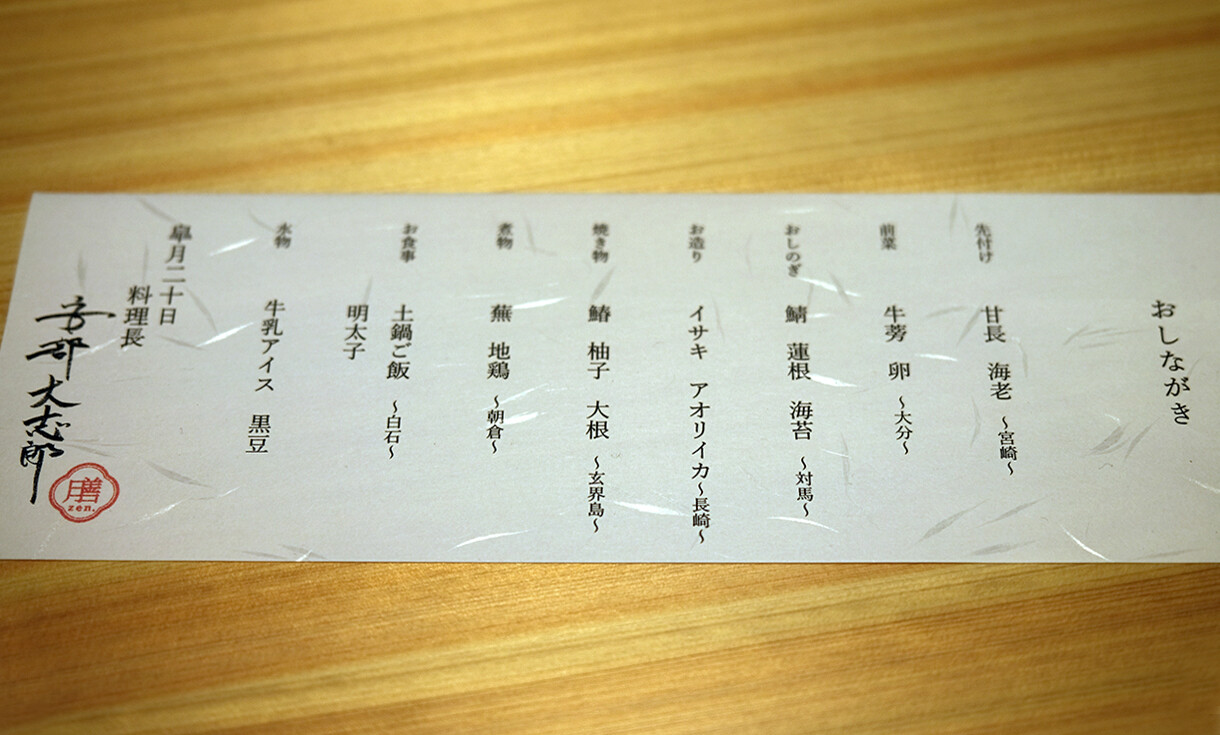 おしながき
先付け
甘長　海老　～宮崎～
前菜
牛蒡　卵　～大分～
おしのぎ
鯖　蓮根　海苔　～対馬～
お造り
イサキ　アオリイカ～長崎～
焼き物
鰆　柚子　大根　～玄界島～
煮物
蕪　地鶏　～朝倉～
お食事
土鍋ご飯　～白石～
明太子
水物
牛乳アイス　黒豆
皐月二十日
料理長
安部大志郎
膳
zen.